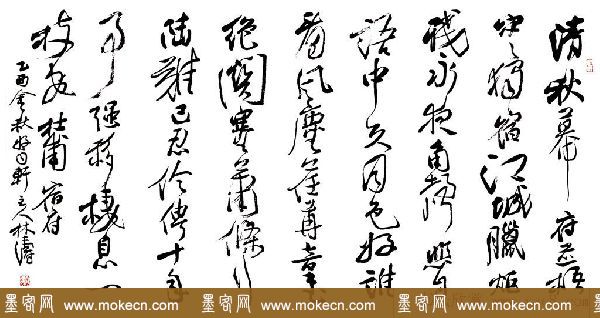 清秋幕府井梧
寒獨宿江城臘炬
殘永夜角聲悲自
語中天月色好誰
看風塵荏苒音書
絕關塞蕭條行
路難已忍伶俜十年
事強移棲息一
枝安杜甫宿府
乙酉金秋 軒主人林濤
墨客网 www.mokecn.com 墨客网 www.mokecn.com 墨客网 www.mokecn.com